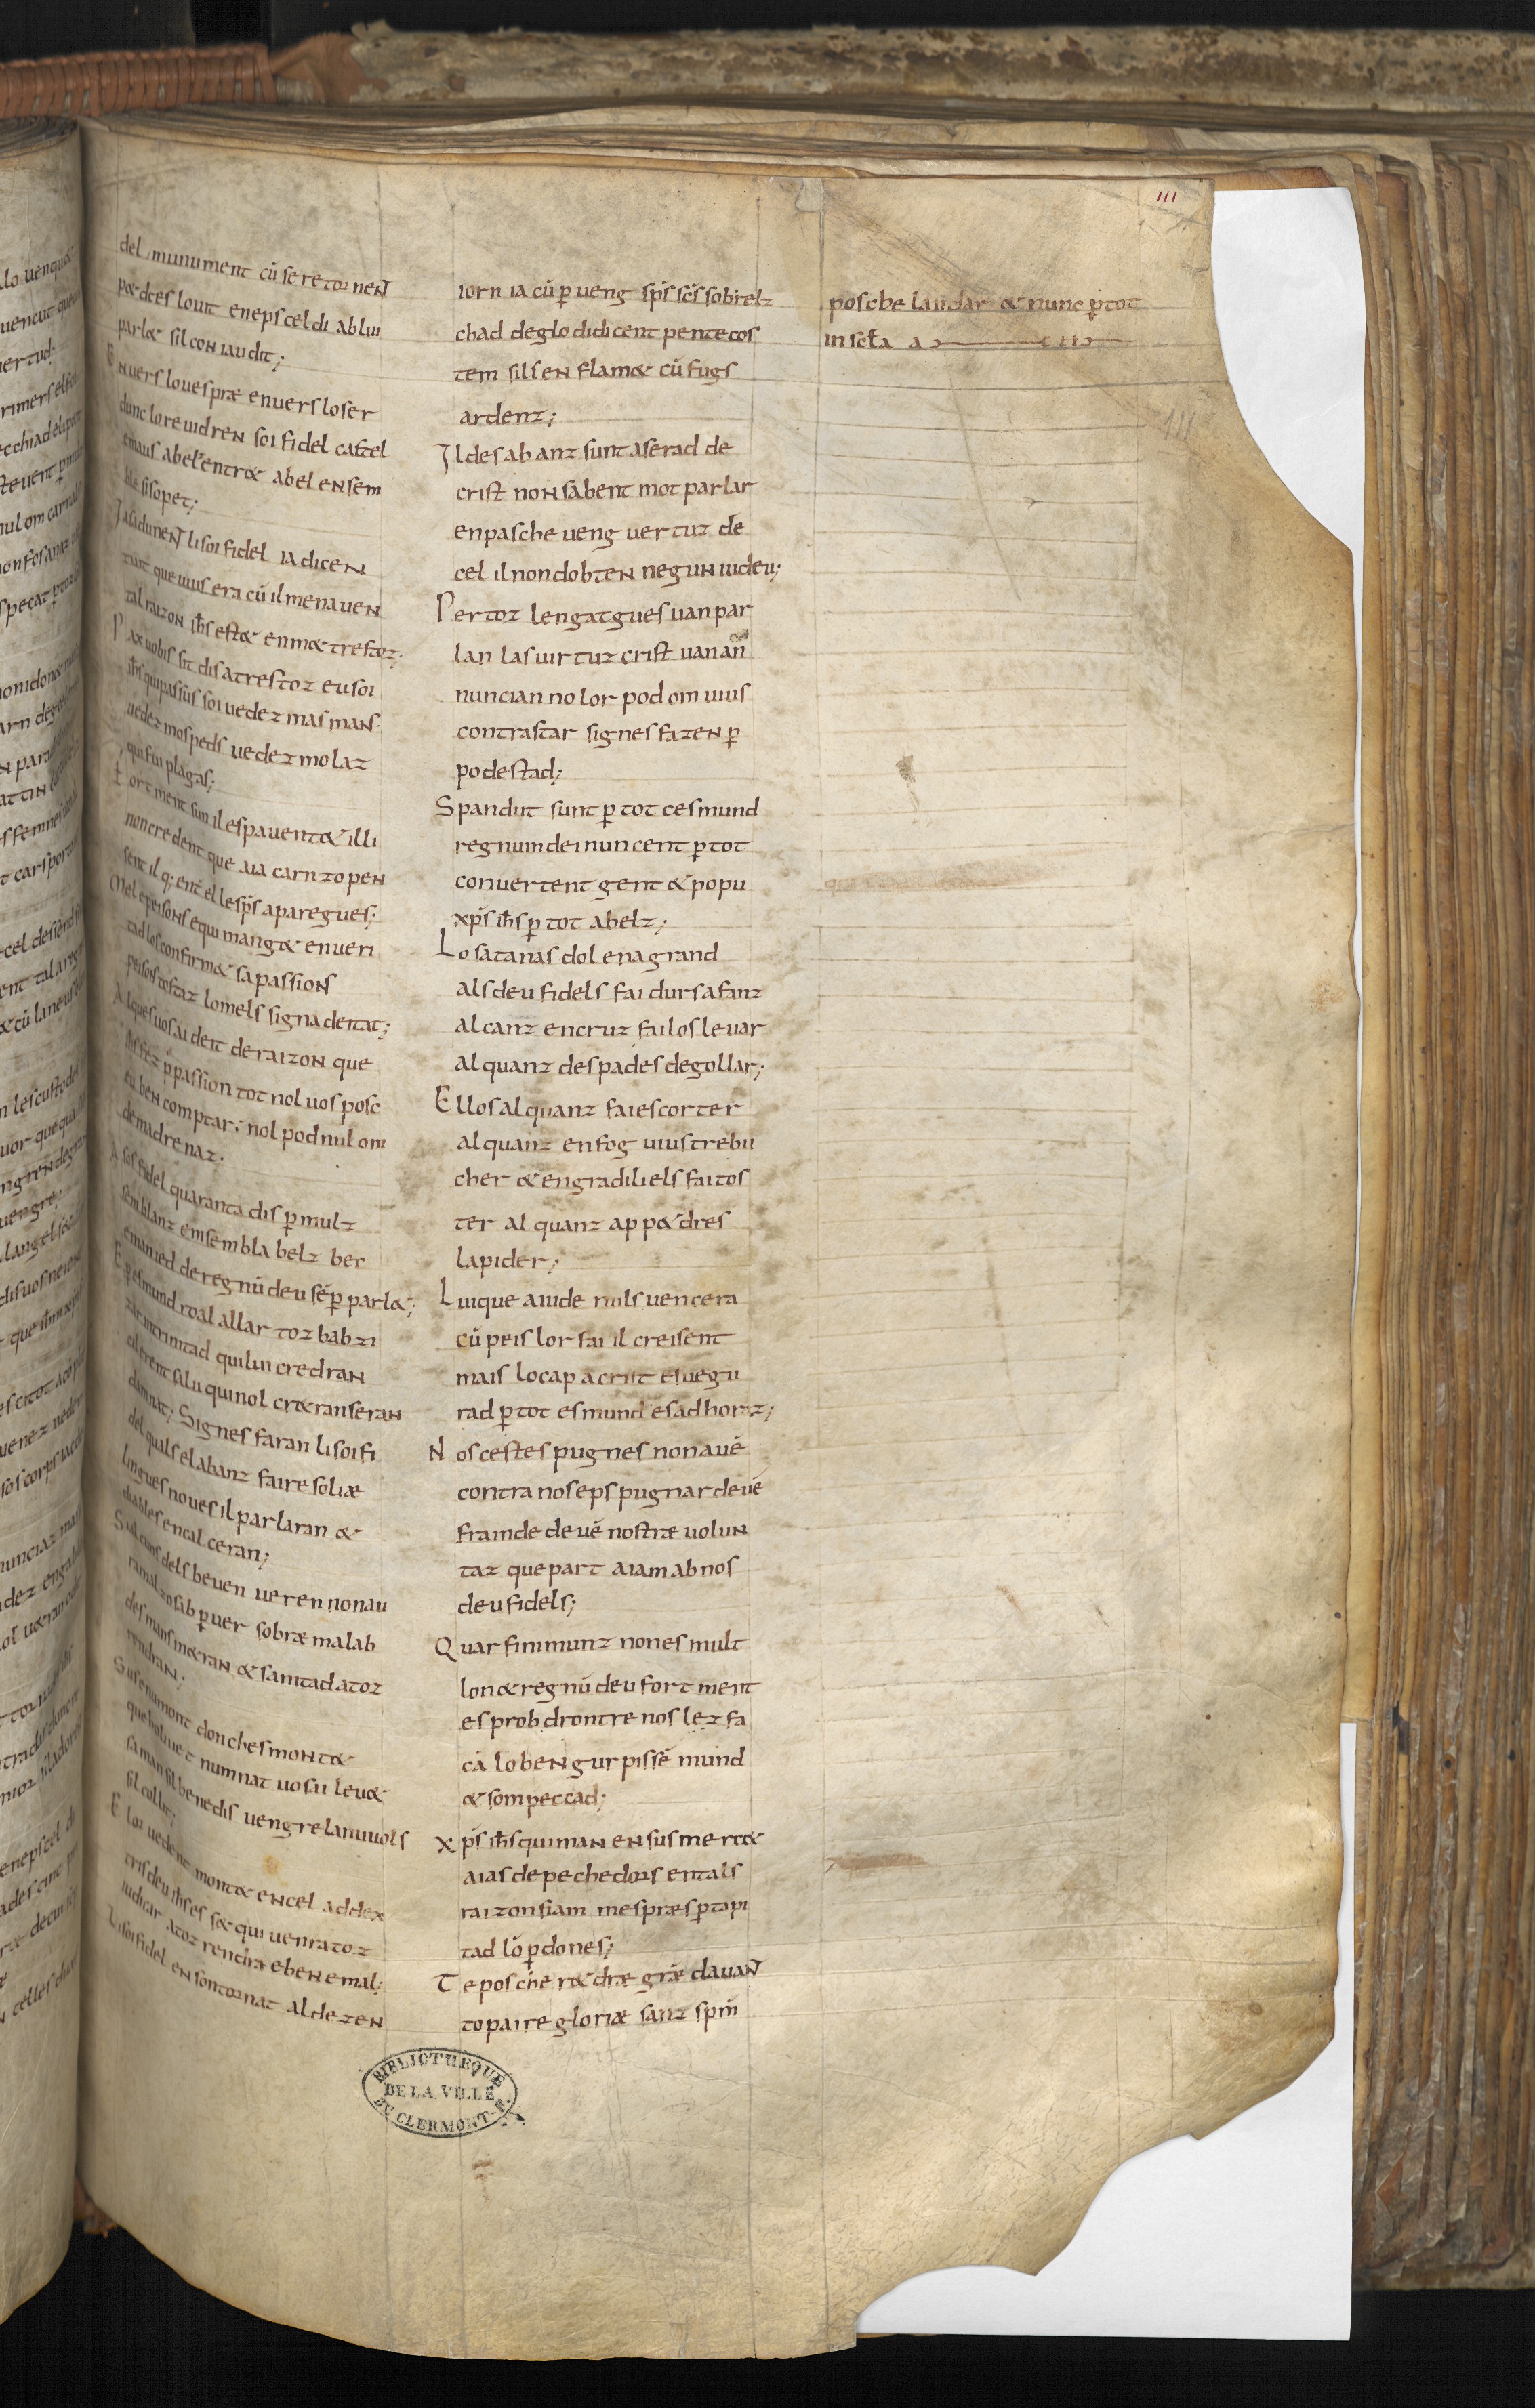 III
del munument cū se retornent
p&dres lo uit eneps cel di ab lui
parl& sil coniaudit;
Enuers lo uesprę enuers lo ser
dunc lor euidren soi fidel castel
emaus ab els entr& ab el ensem
ble si sopet;
Ja fadunent li soi fidel ia dicen
tuit que uius era cū il menauen
tal raizon ihs est& en m& trestoz;
Pax uobis sit dis a trestoz eu soi
ihs qui passus soi uedez mas mans
uedez mos peds uedez mo laz
qui fui plagas;
Fortment sun il espauent& illi
non credent que aia carn zo pen
sent il q; ent els esps aparegues;
Mel e peisons equi mang& en ueri
tad los confirm& sa passions
peisos tostaz lo mels signa deitat;
Alques uos ai deit de raizon que
ihs fez p passion tot nol uos posc
eu ben comptar; nol pod nul om
de madre naz.
A sos fidel quaranta dis p mulz
semblanz ensembl ab elz ber
e manied de regnū deu sēp parl&;
E pes mund roal allar toz babzi
zar in trinitad qui lui credran
cil erent salu qui nol cr&ran seran
damnat; Signes faran li soi fi
del quals el abanz faire soliæ
lingues noues il parlaran &
diables encalceran;
Si alcuns dels beuen ueren non au
ran mal zo sab p uer sobræ malab
des mans m&ran & sanitad a toz
rendran;
Sus en u mont donches mont&
que holiuet num nat uos ai leu&
sa man sil benedis uengre la nuuols
sil collit;
E lor uedent mont& en cel ad dex
tris deu ihs es s& qui uenra toz
iudicar a toz rendra e ben e mal;
Li soi fidel en son tornat al dezen
iorn ia cū p ueng sps scs sobrelz
chad deglodidicent pentecos
tem sils enflam& cū fugs
ardenz;
Il desabanz sunt aserad de
crist non sabent mot parlar
en pasche ueng uertuz de
cel il non dobten negun iudeu;
Per toz lengatgues uan par
lan las uirtuz crist uan an
nuncian no lor pod om uius
contrastar signes fazen p
podestad;
Spandut sunt p tot ces mund
regnum dei nuncent p tot
conuertent gent & popu
xps ihs p tot ab elz;
Lo satanas dol en a grand
als deu fidels fai durs afanz
alcanz en cruz fai los leuar
alquanz d espades degollar;
Ellos alquanz fai escorter
alquanz en fog uius trebu
cher & en gradiliels fai tos
ter alquanz ap p&dres
lapider;
Lui que aiude nuls uencera
cū peis lor fai il creisent
mais lo cap a crut e segu
rad p tot es mund es adhoraz;
Nos cestes pugnes non auē
contra nos eps pugnar deuē
frainde deuē nostræ uolun
taz que part aiam ab nos
deu fidels;
Quar finimunz non es mult
lon & regnū deu fortment
es prob drontre nos lez fa
cā lo ben gurpissē mund
& som peccad;
Xps ihs qui man en sus merc&
aias de pechedors en tals
raizon siam mespræs p ta pi
tad lo pdones;
Te posche r&dræ græ dauant
to paire gloriæ sanz spm
posche laudar & nunc p tot
in scła a m e n
BIBLIOTHEQUE
DE LA VILLE
DE CLERMONT-F.